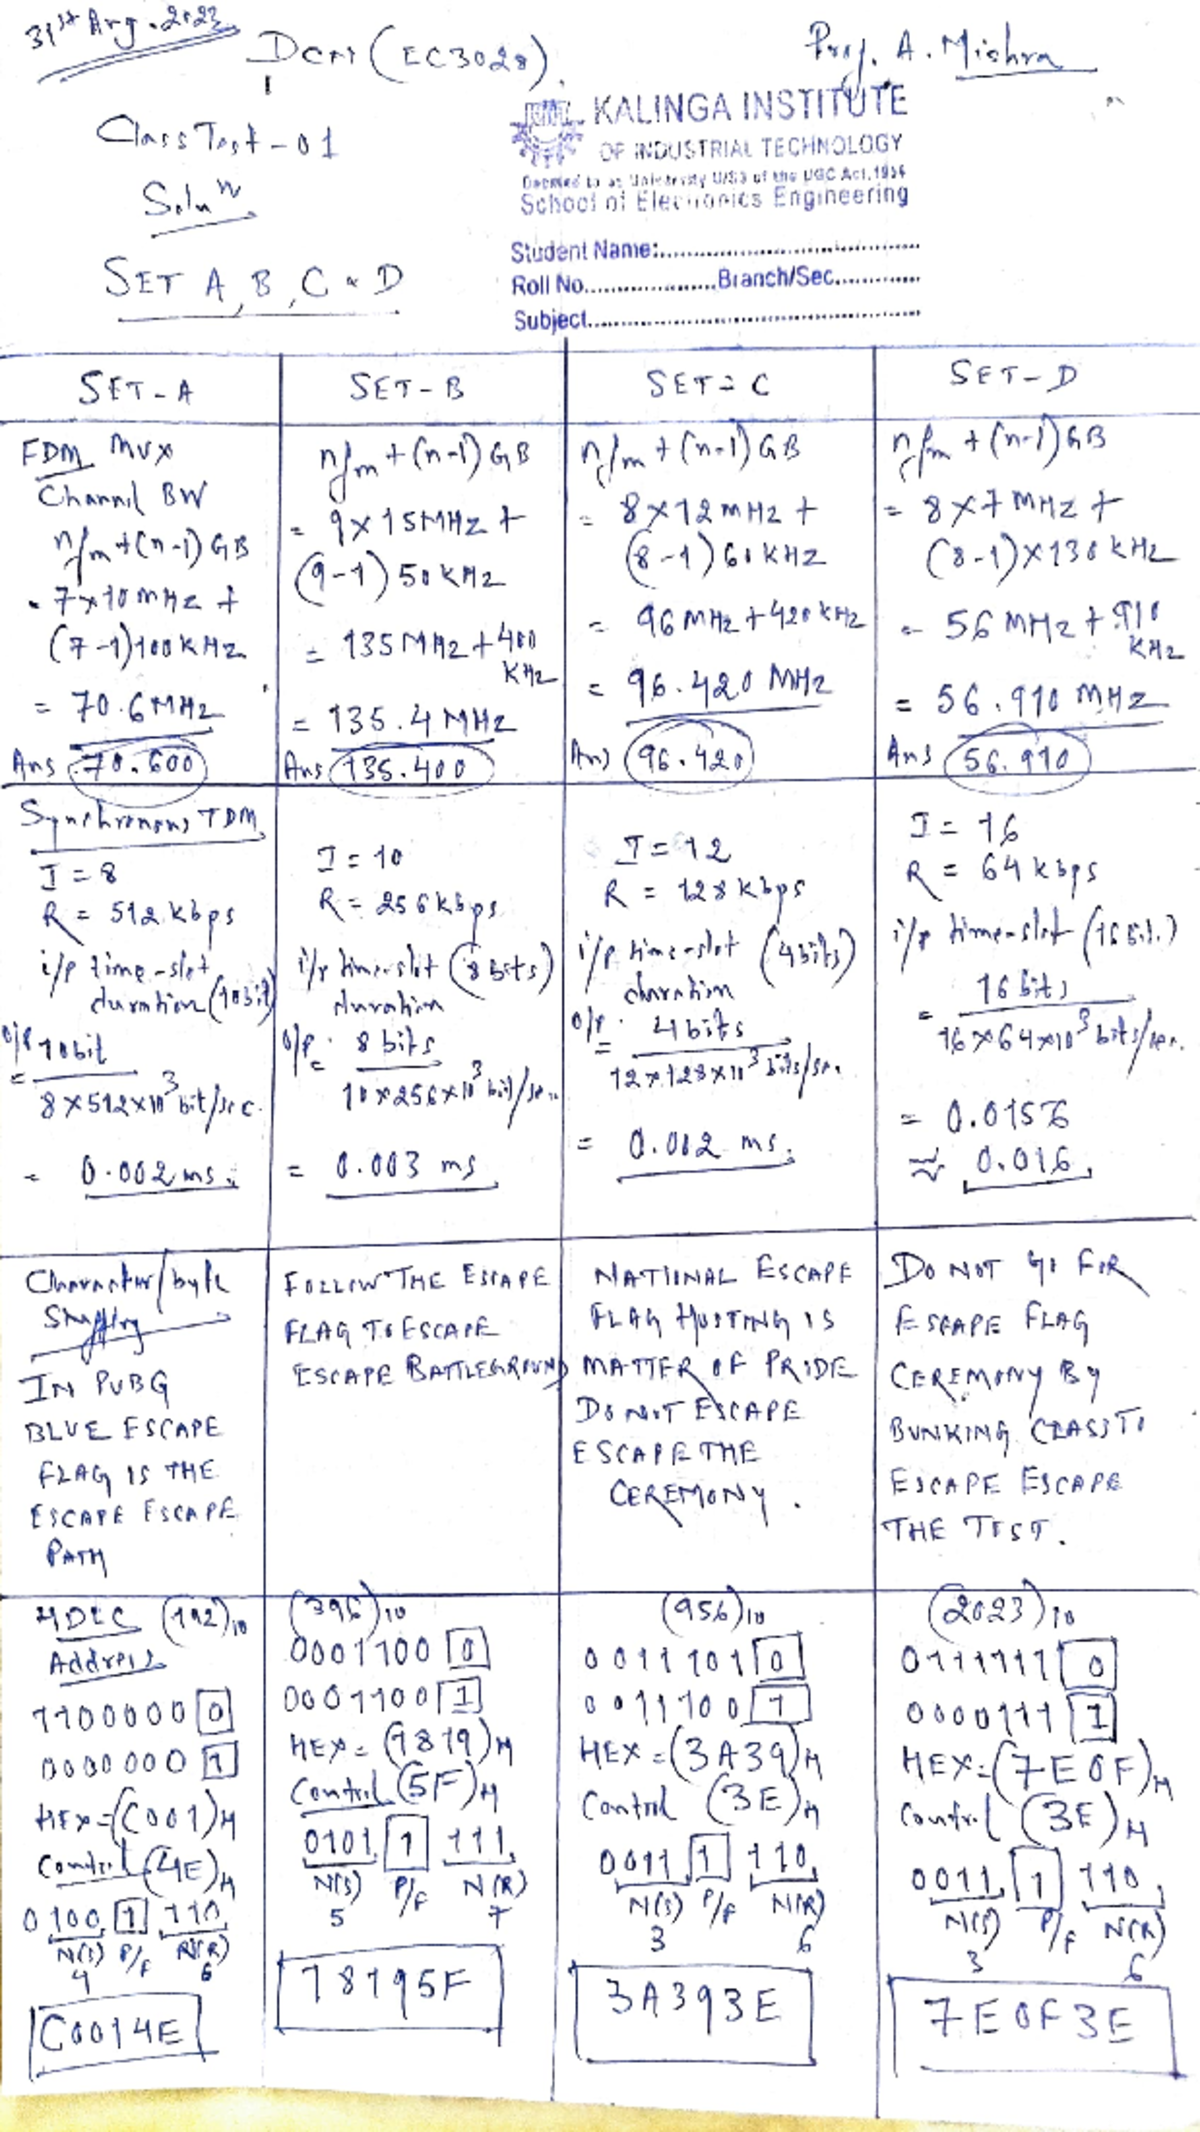 31st Aug. 2023
DCN (EC3028)
Prof. A. Mishra
Class Test - 01
Soluⁿ
SET A, B, C & D
KALINGA INSTITUTE
OF INDUSTRIAL TECHNOLOGY
Deemed to be University U/S3 of the UGC Act, 1956
School of Electronics Engineering
Student Name:
Roll No. Branch/Sec.
Subject
SET - A
FDM MUX
Channel BW
nfm+(n-1)GB
= 7x10MHz +
(7-1)100KHz
= 70.6MHz
Ans 70.600
SET - B
nfm+(n-1)GB
= 9x15MHz +
(9-1)50KHz
= 135MHz+400
KHz
= 135.4MHz
Ans 135.400
SET = C
nfm+(n-1)GB
= 8x12MHz +
(8-1)60KHz
= 96MHz+420KHz
= 96.420 MHz
Ans 96.420
SET - D
nfm+(n-1)GB
= 8x7MHz +
(8-1)x130KHz
= 56MHz+910
KHz
= 56.910 MHz
Ans 56.910
Synchronous TDM
I = 8
R = 512 kbps
i/p time-slot
duration (10bit)
o/p 10bit
= 8x512x10³ bit/sec.
= 0.002 ms.
I = 10
R = 256kbps
i/p time-slot (8bits)
duration
o/p = 8 bits
10x256x10³ bit/sec.
= 0.003 ms.
I = 12
R = 128 kbps
i/p time-slot (4bits)
duration
o/p = 4bits
12x128x10³ bits/sec.
= 0.002 ms.
I = 16
R = 64 kbps
i/p time-slot (16 bit)
= 16 bits
16x64x10³ bits/sec.
= 0.0156
≈ 0.016
Character/byte
Stuffing
IN PUBG
BLUE ESCAPE
FLAG IS THE
ESCAPE ESCAPE
PATH
FOLLOW THE ESCAPE
FLAG TO ESCAPE
ESCAPE BATTLEGROUND
NATIONAL ESCAPE
FLAG HOSTING IS
MATTER OF PRIDE
DO NOT ESCAPE
ESCAPE THE
CEREMONY.
DO NOT GO FOR
ESCAPE FLAG
CEREMONY BY
BUNKING CLASS TO
ESCAPE ESCAPE
THE TEST.
HDLC (192)10
Address
1100000 0
0000000 1
HEX=(C001)H
Control (4E)H
0100 1 110
N(S) P/F N(R)
4 6
C0014E
(396)10
0001100 0
0001100 1
HEX = (1819)H
Control (5F)H
0101 1 111
N(S) P/F N(R)
5 7
18195F
(956)10
0011101 0
0011100 1
HEX = (3A39)H
Control (3E)H
0011 1 110
N(S) P/F N(R)
3 6
3A393E
(2023)10
0111111 0
0000111 1
HEX=(7E0F)H
Control (3E)H
0011 1 110
N(S) P/F N(R)
3 6
7E0F3E